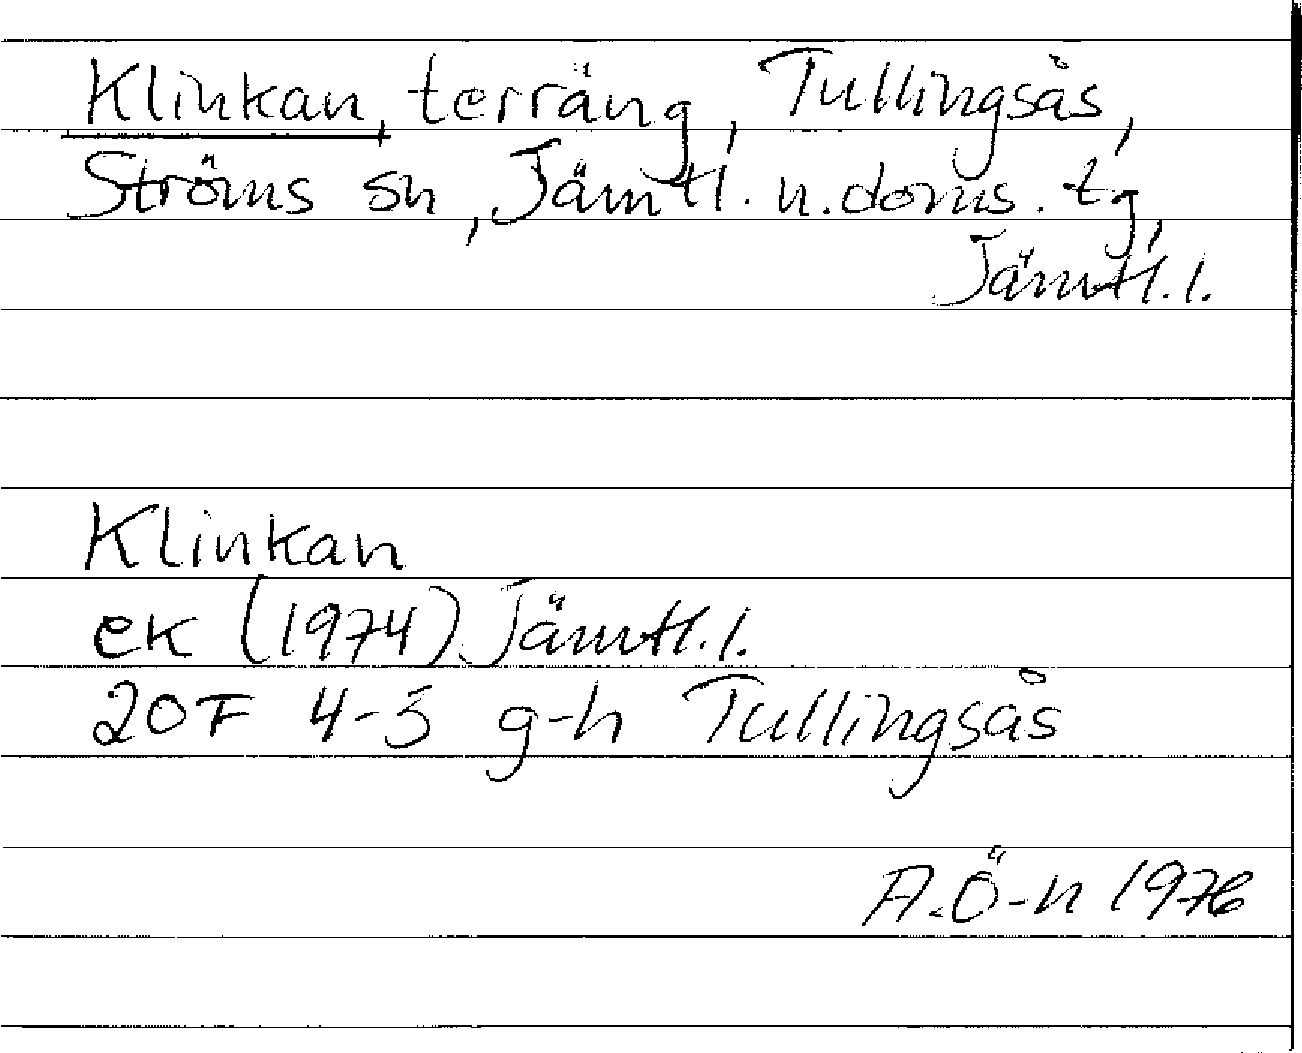 Klinkan, terräng, Tullingsås,
Ströms sn, Jämtl. n. doms. tg,
Jämtl. l.
Klinkan
ek (1974) Jämtl. l.
20F 4-5 g-h Tullingsås
A. Ö-n 1976